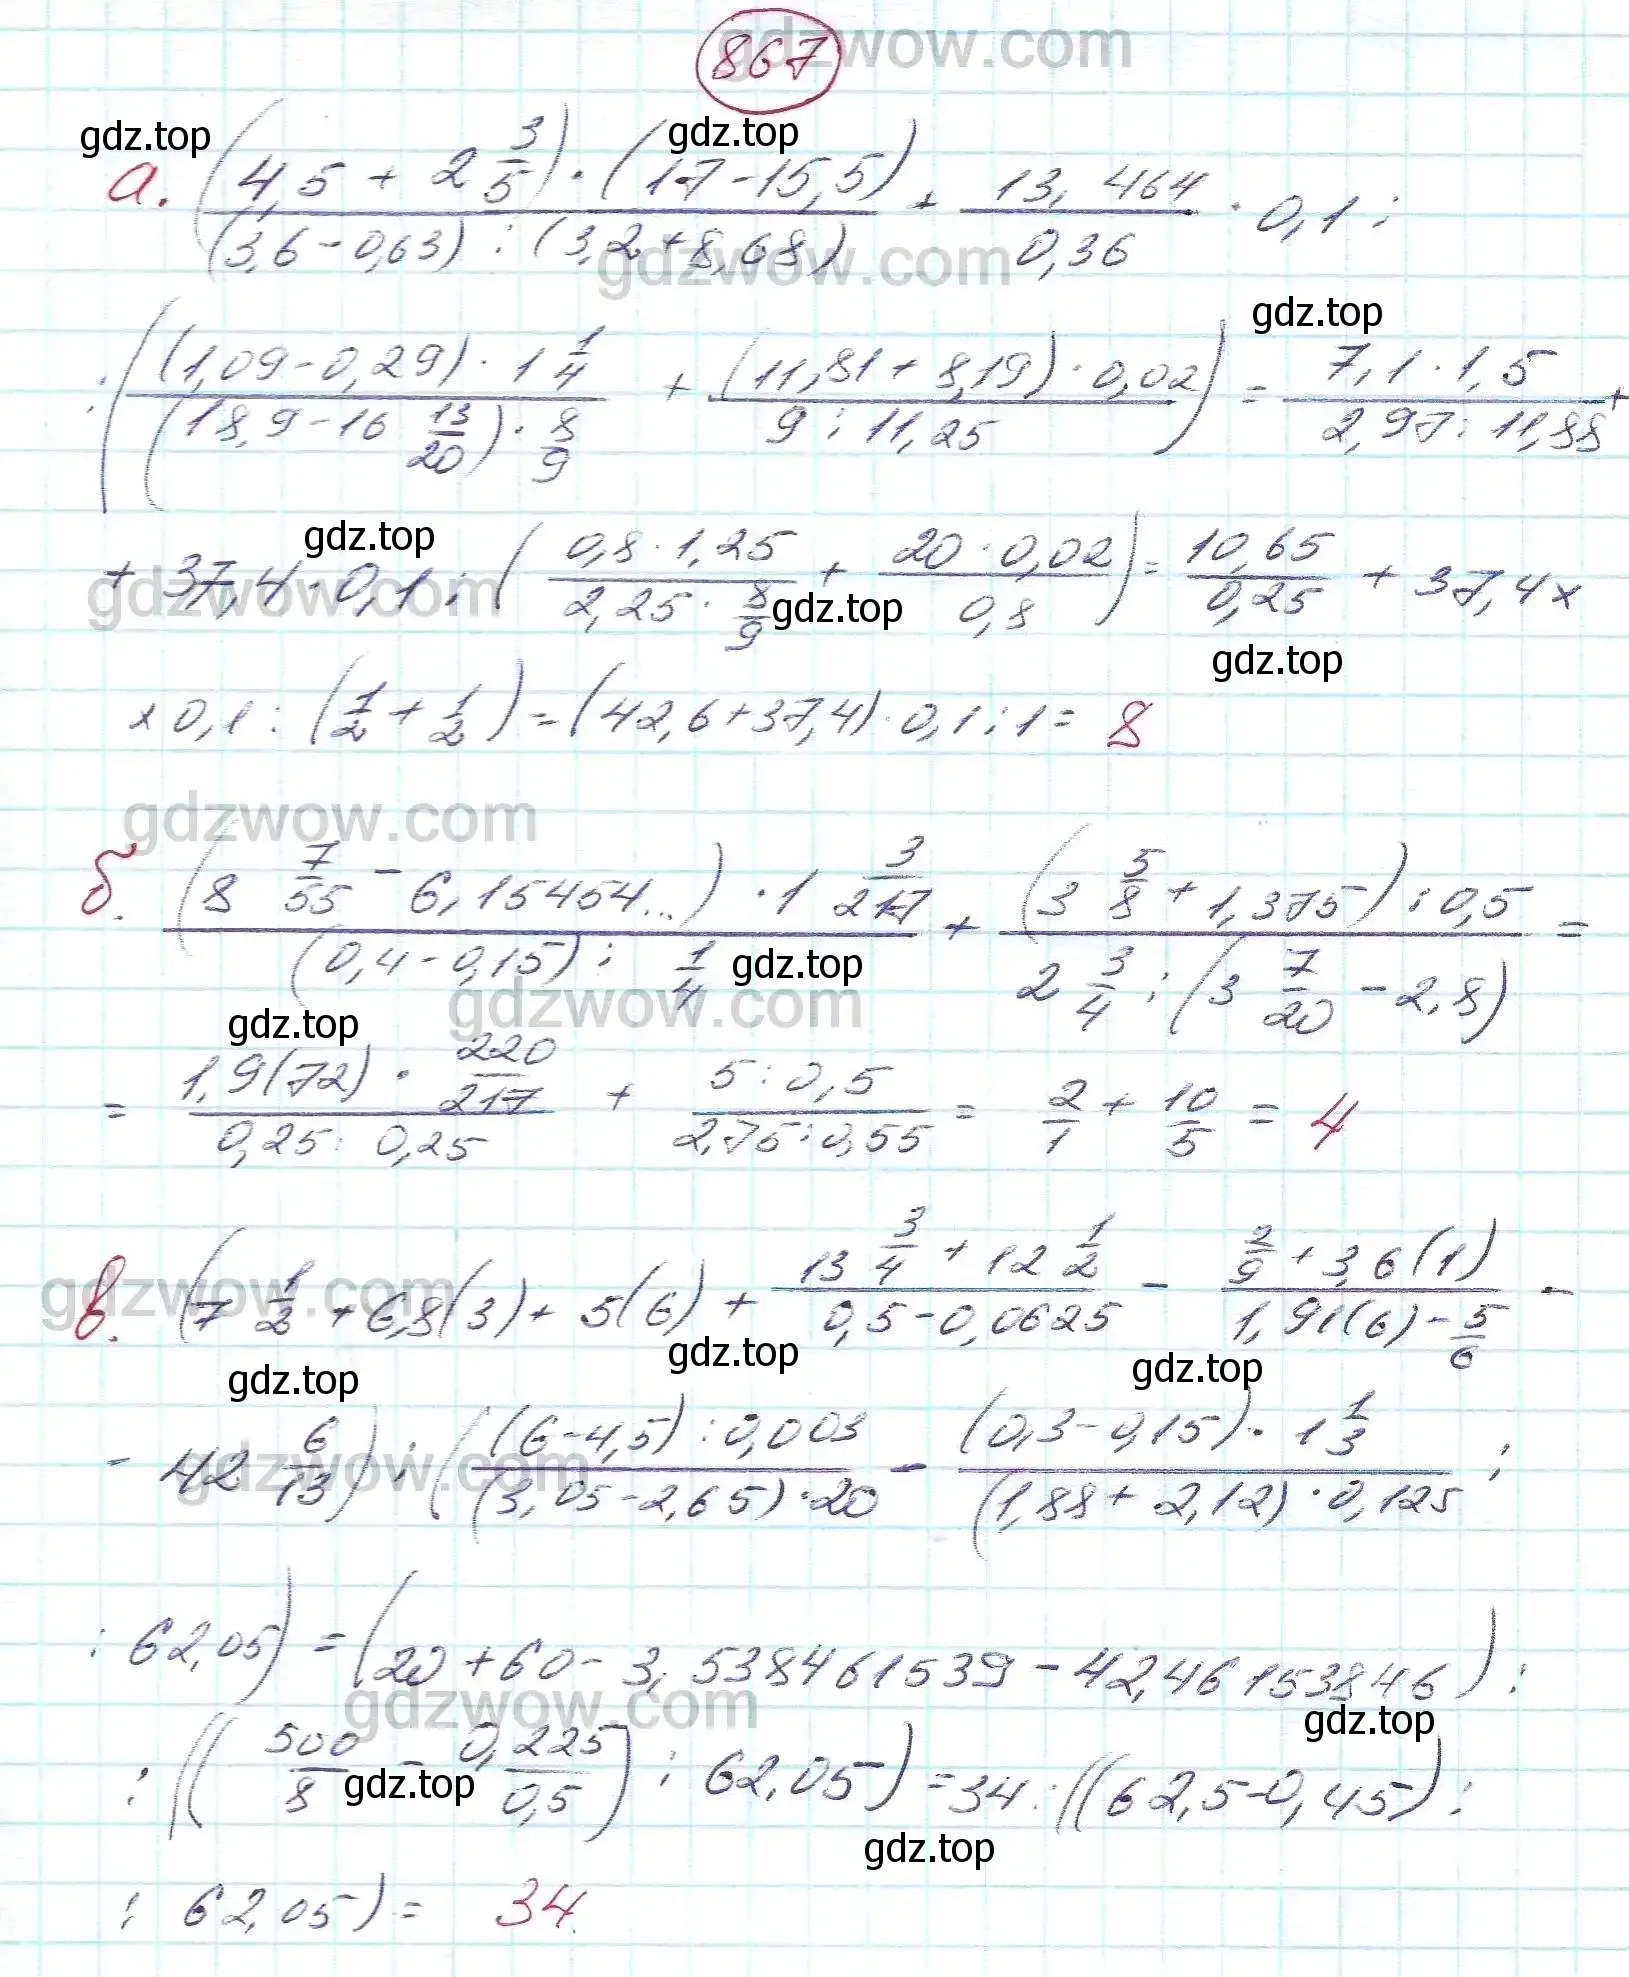 867
а. ((4,5 + 2 3/5) · (17 - 15,5)) / ((3,6 - 0,63) : (3,2 + 8,68)) + 13,464 / 0,36 · 0,1 :
: (((1,09 - 0,29) · 1 1/4) / ((18,9 - 16 13/20) · 8/9) + ((11,81 + 8,19) · 0,02) / (9 : 11,25)) = (7,1 · 1,5) / (2,97 : 11,88) +
+ 37,4 · 0,1 : ((0,8 · 1,25) / (2,25 · 8/9) + (20 · 0,02) / 0,8) = 10,65 / 0,25 + 37,4 x
x 0,1 : (1/2 + 1/2) = (42,6 + 37,4) · 0,1 : 1 = 8
б. ((8 7/55 - 6,15454...) · 1 3/217) / ((0,4 - 0,15) : 1/4) + ((3 5/8 + 1,375) : 0,5) / (2 3/4 : (3 7/20 - 2,8)) =
= (1,9(72) · 220/217) / (0,25 : 0,25) + (5 : 0,5) / (2,75 : 0,55) = 2/1 + 10/5 = 4
в. (7 1/2 + 6,8(3) + 5(6) + (13 3/4 + 12 1/2) / (0,5 - 0,0625) - (2/9 + 3,6(1)) / (1,91(6) - 5/6) -
- 42 6/13) : (((6 - 4,5) : 0,003) / ((3,05 - 2,65) · 20) - ((0,3 - 0,15) · 1 1/3) / ((1,88 + 2,12) · 0,125) :
: 62,05) = (20 + 60 - 3,538461539 - 42,46153846) :
: ((500/8 - 0,225/0,5) : 62,05) = 34 : ((62,5 - 0,45) :
: 62,05) = 34.
gdzwow.com
gdz.top
gdz.top
gdzwow.com
gdz.top
gdz.top
gdzwow.com
gdz.top
gdz.top
gdzwow.com
gdz.top
gdzwow.com
gdz.top
gdzwow.com
gdz.top
gdz.top
gdz.top
gdzwow.com
gdzwow.com
gdz.top
gdz.top
gdz.top